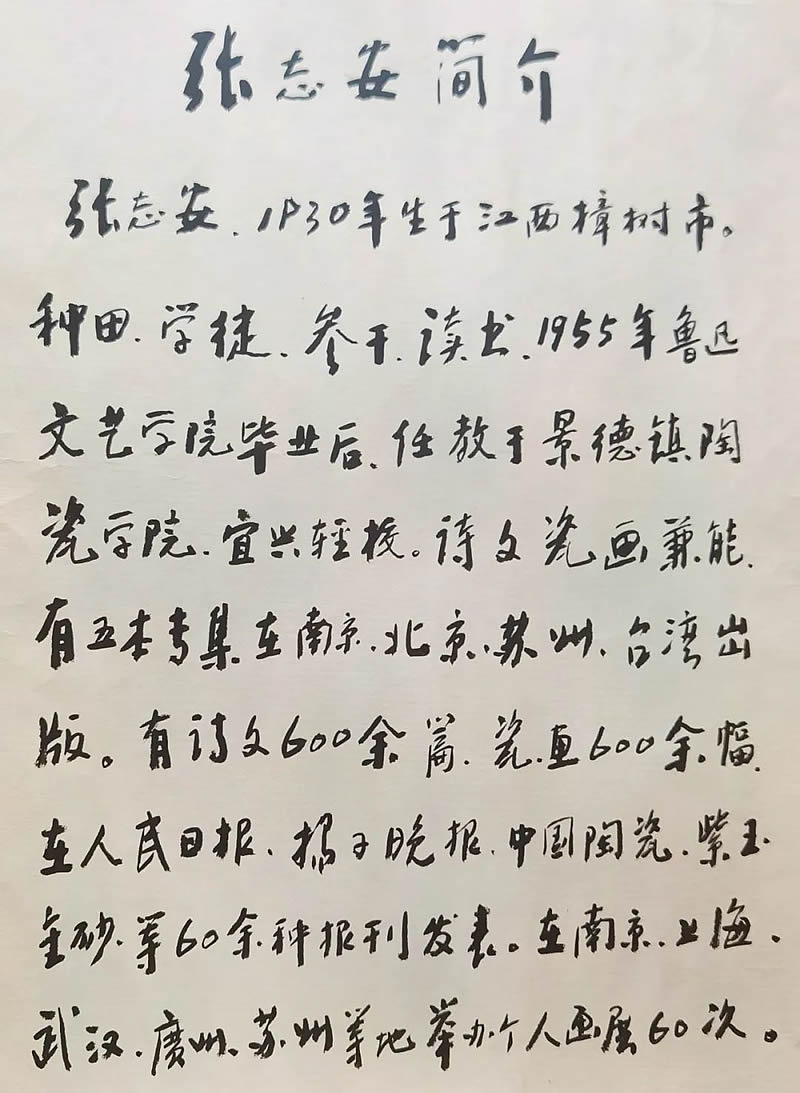 张志安简介
张志安、1930年生于江西樟树市。
种田、学徒、参干、读书、1955年鲁迅
文艺学院毕业后、任教于景德镇陶
瓷学院、宜兴轻校。诗文瓷画兼能、
有五本专集在南京、北京、苏州、台湾出
版。有诗文600余篇、瓷画600余幅、
在人民日报、扬子晚报、中国陶瓷、紫玉
金砂、等60余种报刊发表。在南京、上海、
武汉、廣州、苏州等地举办个人画展60次。